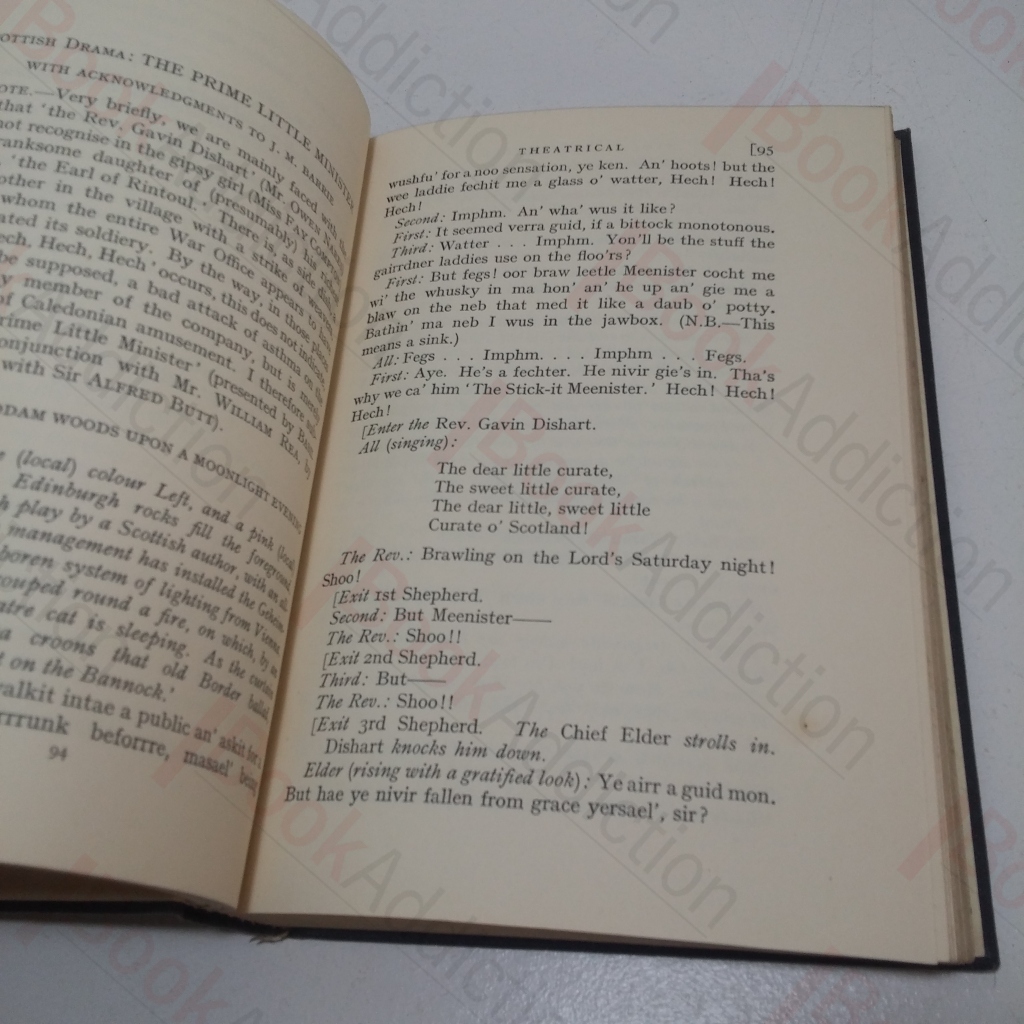 OTTISH DRAMA: THE PRIME LITTLE MINISTER
WITH ACKNOWLEDGMENTS TO J. M. BARRIE
OTE.—Very briefly, we are mainly faced with the
that 'the Rev. Gavin Dishart' (Mr. OWEN
not recognise in the gipsy girl (Miss FAY COMPTON)
ranksome daughter of (presumably) his
'the Earl of Rintoul.' There is, as side dish,
other in the village with a strike of weavers,
whom the entire War Office appears to have
ated its soldiery. By the way, in those places
ech, Hech, Hech' occurs, this does not indicate,
be supposed, a bad attack of asthma on the
y member of the company, but is merely
of Caledonian amusement. I therefore
rime Little Minister' (presented by
onjunction with Mr. WILLIAM REA, by
with Sir ALFRED BUTT).
DDAM WOODS UPON A MOONLIGHT EVENING
(local) colour Left, and a pink (local
Edinburgh rocks fill the foreground.
h play by a Scottish author, with an
management has installed the
boren system of lighting from Vienna
rouped round a fire, on which, by an
atre cat is sleeping. As the curtain
a croons that old Border ballad
t on the Bannock.'
alkit intae a public an' askit for a
rrrrunk beforrre, masael' being
94
THEATRICAL [95
wushfu' for a noo sensation, ye ken. An' hoots! but the
wee laddie fechit me a glass o' watter, Hech! Hech!
Hech!
Second: Imphm. An' wha' wus it like?
First: It seemed verra guid, if a bittock monotonous.
Third: Watter . . . Imphm. Yon'll be the stuff the
gairrdner laddies use on the floo'rs?
First: But fegs! oor braw leetle Meenister cocht me
wi' the whusky in ma hon' an' he up an' gie me a
blaw on the neb that med it like a daub o' potty.
Bathin' ma neb I wus in the jawbox. (N.B.—This
means a sink.)
All: Fegs . . . Imphm. . . . Imphm . . . Fegs.
First: Aye. He's a fechter. He nivir gie's in. Tha's
why we ca' him 'The Stick-it Meenister.' Hech! Hech!
Hech!
[Enter the Rev. Gavin Dishart.
All (singing):
The dear little curate,
The sweet little curate,
The dear little, sweet little
Curate o' Scotland!
The Rev.: Brawling on the Lord's Saturday night!
Shoo!
[Exit 1st Shepherd.
Second: But Meenister——
The Rev.: Shoo!!
[Exit 2nd Shepherd.
Third: But——
The Rev.: Shoo!!
[Exit 3rd Shepherd. The Chief Elder strolls in.
Dishart knocks him down.
Elder (rising with a gratified look): Ye airr a guid mon.
But hae ye nivir fallen from grace yersael', sir?